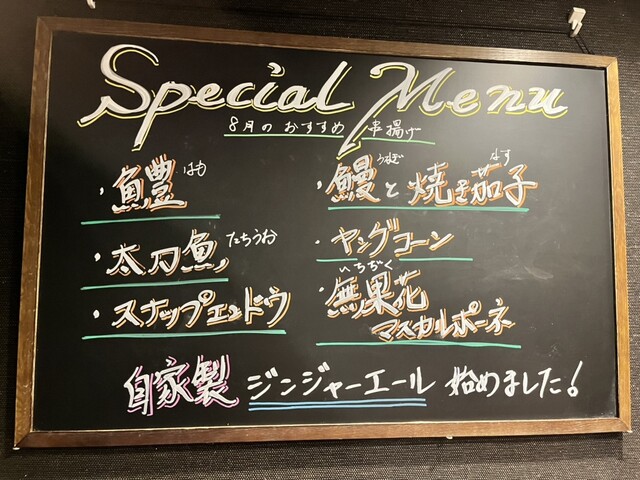 Special Menu
8月のおすすめ 串揚げ
・鱧 はも
・太刀魚 たちうお
・スナップエンドウ
うなぎ なす
・鰻と焼き茄子
・ヤングコーン
いちぢく
・無果花
マスカルポーネ
自家製 ジンジャーエール 始めました!